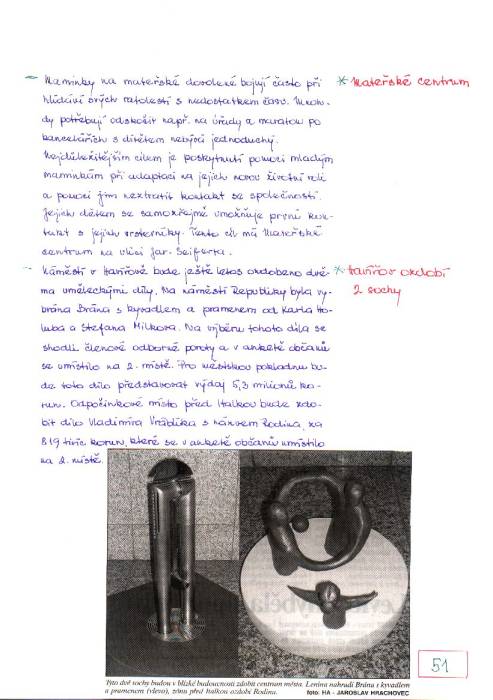 – Maminky na mateřské dovolené bojují často při
hlídání svých ratolestí s nedostatkem času. Mnoh-
dy potřebují odskočit např. na úřady a maraton po
kancelářích s dítětem nebývá jednoduchý.
Nejdůležitějším cílem je poskytnutí pomoci mladým
maminkám při adaptaci na jejich novou životní roli
a pomoci jim neztratit kontakt se společností.
Jejich dětem se samozřejmě umožňuje první kon-
takt s jejich vrstevníky. Tento cíl má Mateřské
centrum na ulici Jar. Seiferta.
* Mateřské centrum
– Náměstí v Havířově bude ještě letos ozdobeno dvě-
ma uměleckými díly. Na náměstí Republiky byla vy-
brána Brána s kyvadlem a pramenem od Karla Ho-
luba a Stefana Milkova. Na výběru tohoto díla se
shodli členové odborné poroty a v anketě občanů
se umístilo na 2. místě. Pro městskou pokladnu bu-
de toto dílo představovat výdaj 5,3 milionů ko-
run. Odpočinkové místo před Italkou bude zdo-
bit dílo Vladimíra Vráblíka s názvem Rodina, za
819 tisíc korun, které se v anketě občanů umístilo
na 2. místě.
* Havířov ozdobí
2 sochy
Tyto dvě sochy budou v blízké budoucnosti zdobit centrum města. Lenina nahradí Brána s kyvadlem
a pramenem (vlevo), zónu před Italkou ozdobí Rodina.
foto: HA - JAROSLAV HRACHOVEC
51